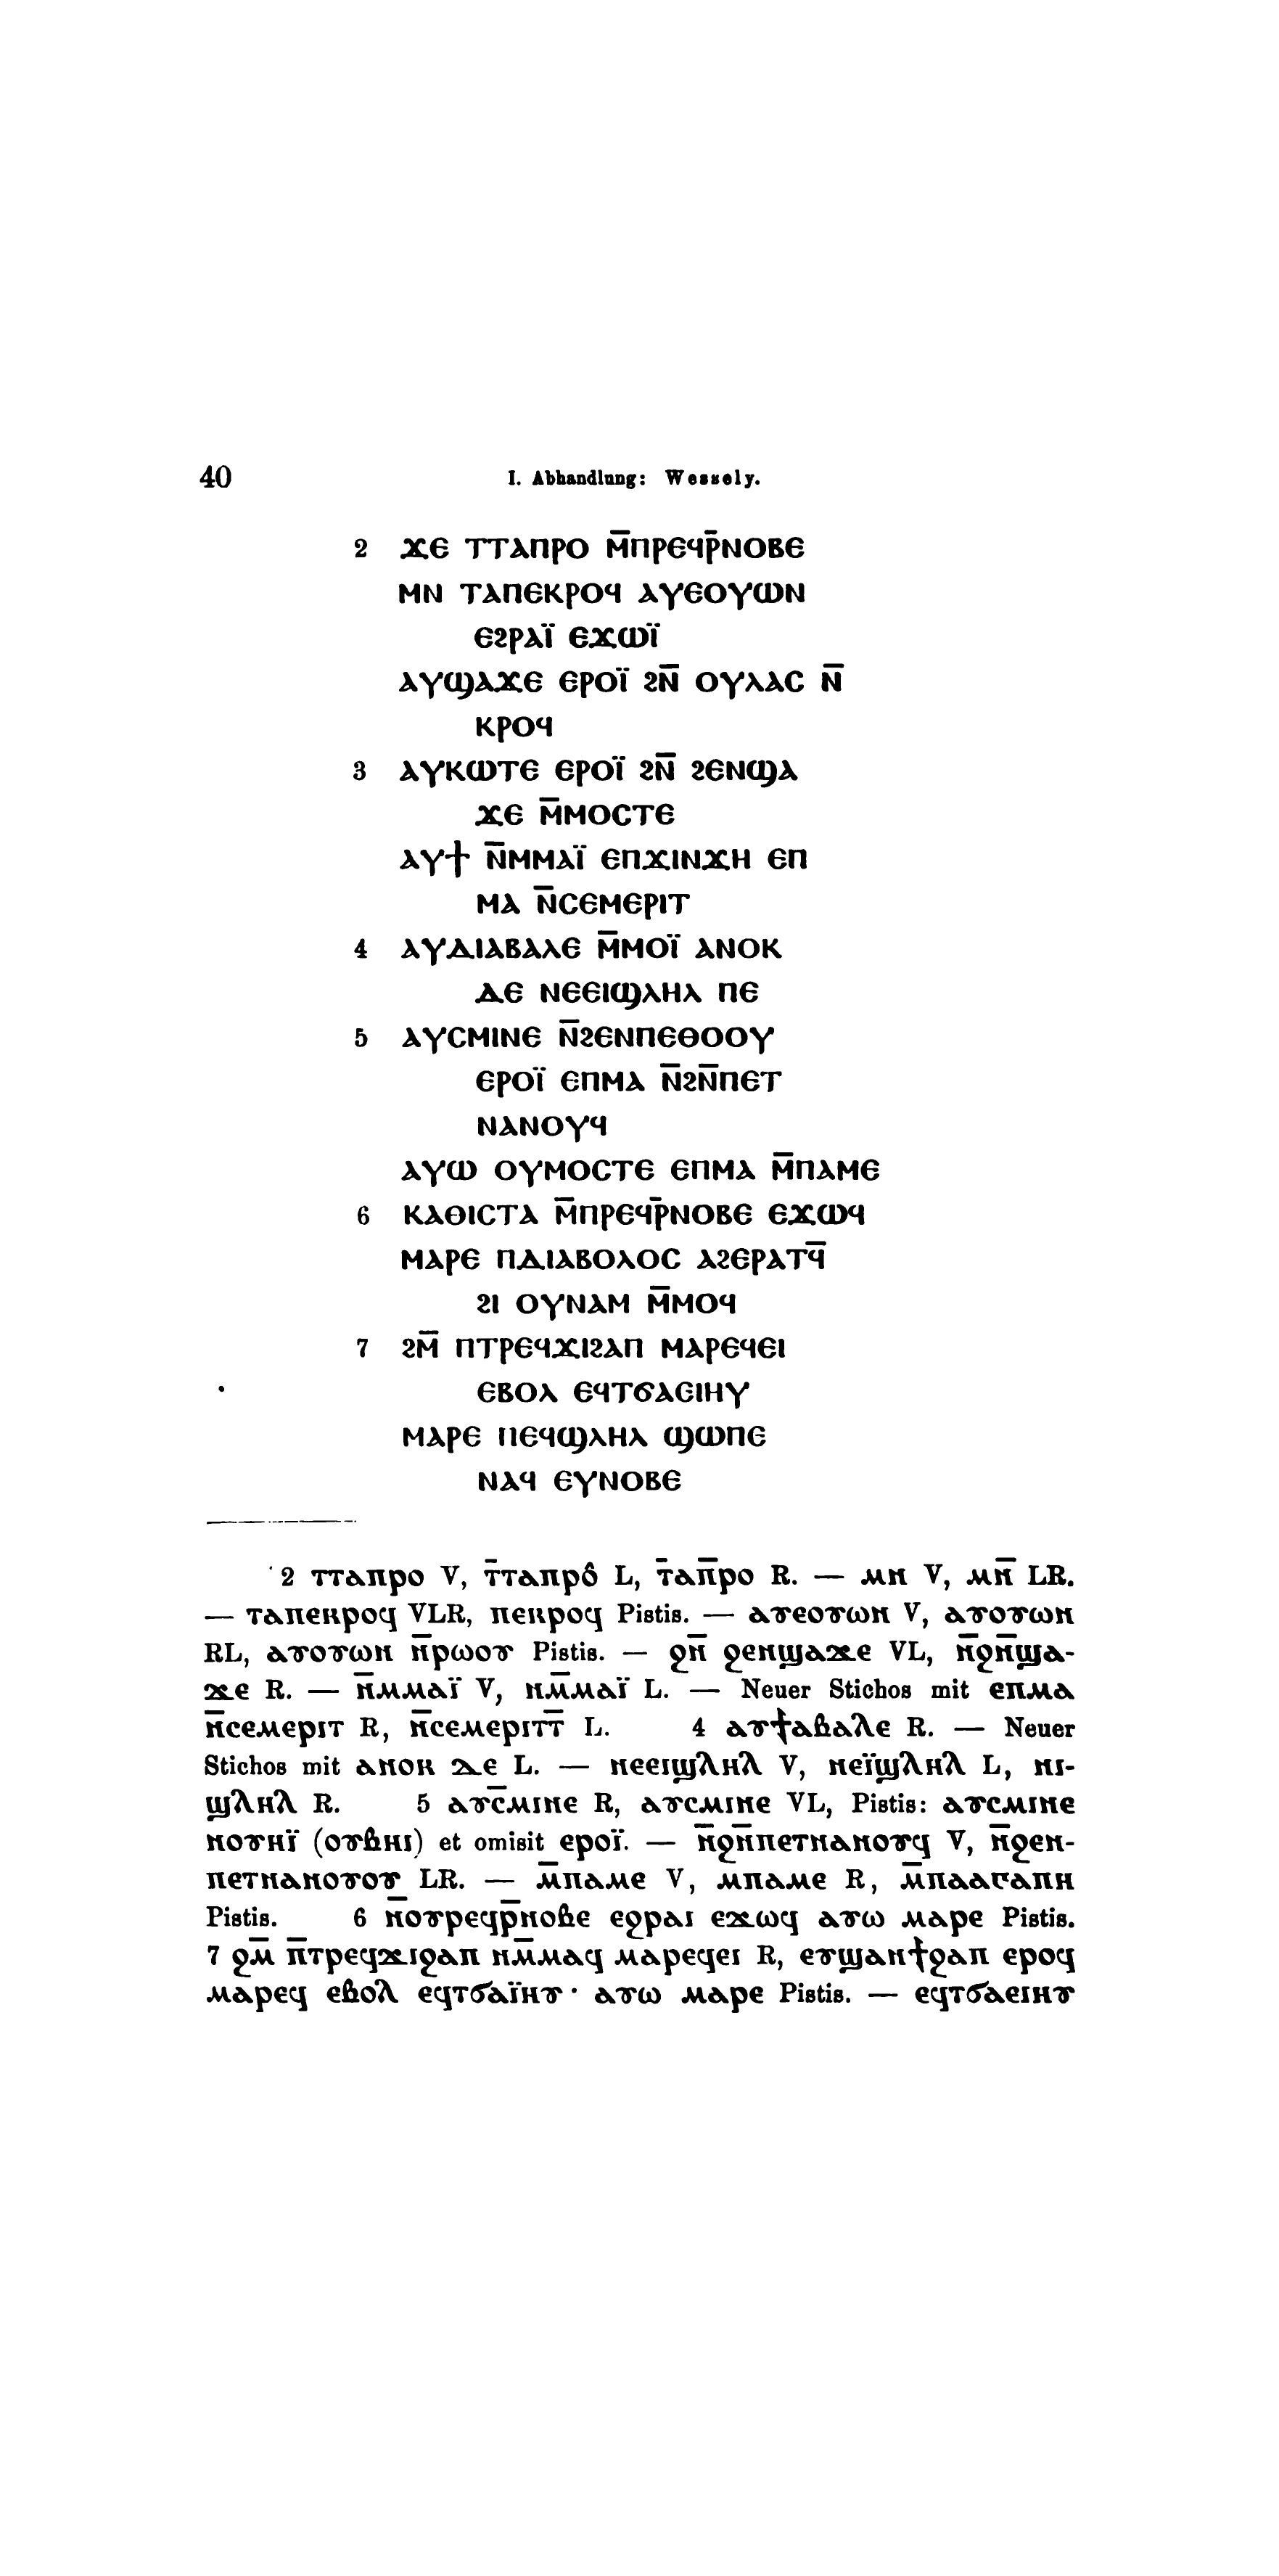 40 I. Abhandlung: Wessely.
2 ϫⲉ ⲧⲧⲁⲡⲣⲟ ⲙ̅ⲡⲣⲉϥⲣ̅ⲛⲟⲃⲉ
ⲙⲛ ⲧⲁⲡⲉⲕⲣⲟϥ ⲁⲩⲉⲟⲩⲱⲛ
ⲉϩⲣⲁⲓ̈ ⲉϫⲱⲓ̈
ⲁⲩϣⲁϫⲉ ⲉⲣⲟⲓ̈ ϩⲛ̅ ⲟⲩⲗⲁⲥ ⲛ̅
ⲕⲣⲟϥ
3 ⲁⲩⲕⲱⲧⲉ ⲉⲣⲟⲓ̈ ϩⲛ̅ ϩⲉⲛϣⲁ
ϫⲉ ⲙ̅ⲙⲟⲥⲧⲉ
ⲁⲩϯ ⲛ̅ⲙⲙⲁⲓ̈ ⲉⲡϫⲓⲛϫⲏ ⲉⲡ
ⲙⲁ ⲛ̅ⲥⲉⲙⲉⲣⲓⲧ
4 ⲁⲩⲇⲓⲁⲃⲁⲗⲉ ⲙ̅ⲙⲟⲓ̈ ⲁⲛⲟⲕ
ⲇⲉ ⲛⲉⲉⲓϣⲗⲏⲗ ⲡⲉ
5 ⲁⲩⲥⲙⲓⲛⲉ ⲛ̅ϩⲉⲛⲡⲉⲑⲟⲟⲩ
ⲉⲣⲟⲓ̈ ⲉⲡⲙⲁ ⲛ̅ϩⲛ̅ⲡⲉⲧ
ⲛⲁⲛⲟⲩϥ
ⲁⲩⲱ ⲟⲩⲙⲟⲥⲧⲉ ⲉⲡⲙⲁ ⲙ̅ⲡⲁⲙⲉ
6 ⲕⲁⲑⲓⲥⲧⲁ ⲙ̅ⲡⲣⲉϥⲣ̅ⲛⲟⲃⲉ ⲉϫⲱϥ
ⲙⲁⲣⲉ ⲡⲇⲓⲁⲃⲟⲗⲟⲥ ⲁϩⲉⲣⲁⲧϥ̅
ϩⲓ ⲟⲩⲛⲁⲙ ⲙ̅ⲙⲟϥ
7 ϩⲙ̅ ⲡⲧⲣⲉϥϫⲓϩⲁⲡ ⲙⲁⲣⲉϥⲉⲓ
ⲉⲃⲟⲗ ⲉϥⲧϭⲁⲉⲓⲏⲩ
ⲙⲁⲣⲉ ⲡⲉϥϣⲗⲏⲗ ϣⲱⲡⲉ
ⲛⲁϥ ⲉⲩⲛⲟⲃⲉ
2 ⲧⲧⲁⲡⲣⲟ V, ⲧ̅ⲧⲁⲡⲣⲟ̂ L, ⲧ̅ⲁⲡ̅ⲣⲟ R. — ⲙⲛ V, ⲙⲛ̅ LR.
— ⲧⲁⲡⲉⲕⲣⲟϥ VLR, ⲡⲉⲕⲣⲟϥ Pistis. — ⲁⲩⲉⲟⲩⲱⲛ V, ⲁⲩⲟⲩⲱⲛ
RL, ⲁⲩⲟⲩⲱⲛ ⲛ̅ⲣⲱⲟⲩ Pistis. — ϩⲛ̅ ϩⲉⲛϣⲁϫⲉ VL, ⲛ̅ϩⲛ̅ϣⲁ-
ϫⲉ R. — ⲛ̅ⲙⲙⲁⲓ̈ V, ⲛⲙ̅ⲙⲁⲓ̈ L. — Neuer Stichos mit ⲉⲡⲙⲁ
ⲛ̅ⲥⲉⲙⲉⲣⲓⲧ R, ⲛ̅ⲥⲉⲙⲉⲣⲓⲧⲧ̅ L. 4 ⲁⲩϯⲁⲃⲁⲗⲉ R. — Neuer
Stichos mit ⲁⲛⲟⲕ ⲇⲉ L. — ⲛⲉⲉⲓϣⲗⲏⲗ V, ⲛⲉⲓ̈ϣⲗⲏⲗ L, ⲛⲓ-
ϣⲗⲏⲗ R. 5 ⲁⲩⲥ̅ⲙⲓⲛⲉ R, ⲁⲩⲥⲙⲓⲛⲉ VL, Pistis: ⲁⲩⲥⲙⲓⲛⲉ
ⲛⲟⲩⲏⲓ̈ (ⲟⲩⲃⲏⲓ) et omisit ⲉⲣⲟⲓ̈. — ⲛ̅ϩⲛ̅ⲡⲉⲧⲛⲁⲛⲟⲩϥ V, ⲛ̅ϩⲉⲛ-
ⲡⲉⲧⲛⲁⲛⲟⲩⲟⲩ LR. — ⲙ̅ⲡⲁⲙⲉ V, ⲙⲡⲁⲙⲉ R, ⲙ̅ⲡⲁⲁⲅⲁⲡⲏ
Pistis. 6 ⲛ̅ⲟⲩⲣⲉϥⲣ̅ⲛⲟⲃⲉ ⲉϩⲣⲁⲓ ⲉϫⲱϥ ⲁⲩⲱ ⲙⲁⲣⲉ Pistis.
7 ϩⲙ̅ ⲡ̅ⲧⲣⲉϥϫⲓϩⲁⲡ ⲛⲙ̅ⲙⲁϥ ⲙⲁⲣⲉϥⲉⲓ R, ⲉⲩϣⲁⲛϯϩⲁⲡ ⲉⲣⲟϥ
ⲙⲁⲣⲉϥ ⲉⲃⲟⲗ ⲉϥⲧϭⲁⲓ̈ⲏⲩ · ⲁⲩⲱ ⲙⲁⲣⲉ Pistis. — ⲉϥⲧϭⲁⲉⲓⲏⲩ